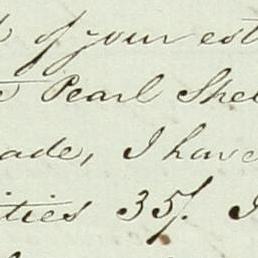 of your est
Pearl Shel
ade, I have
ities 35/. I